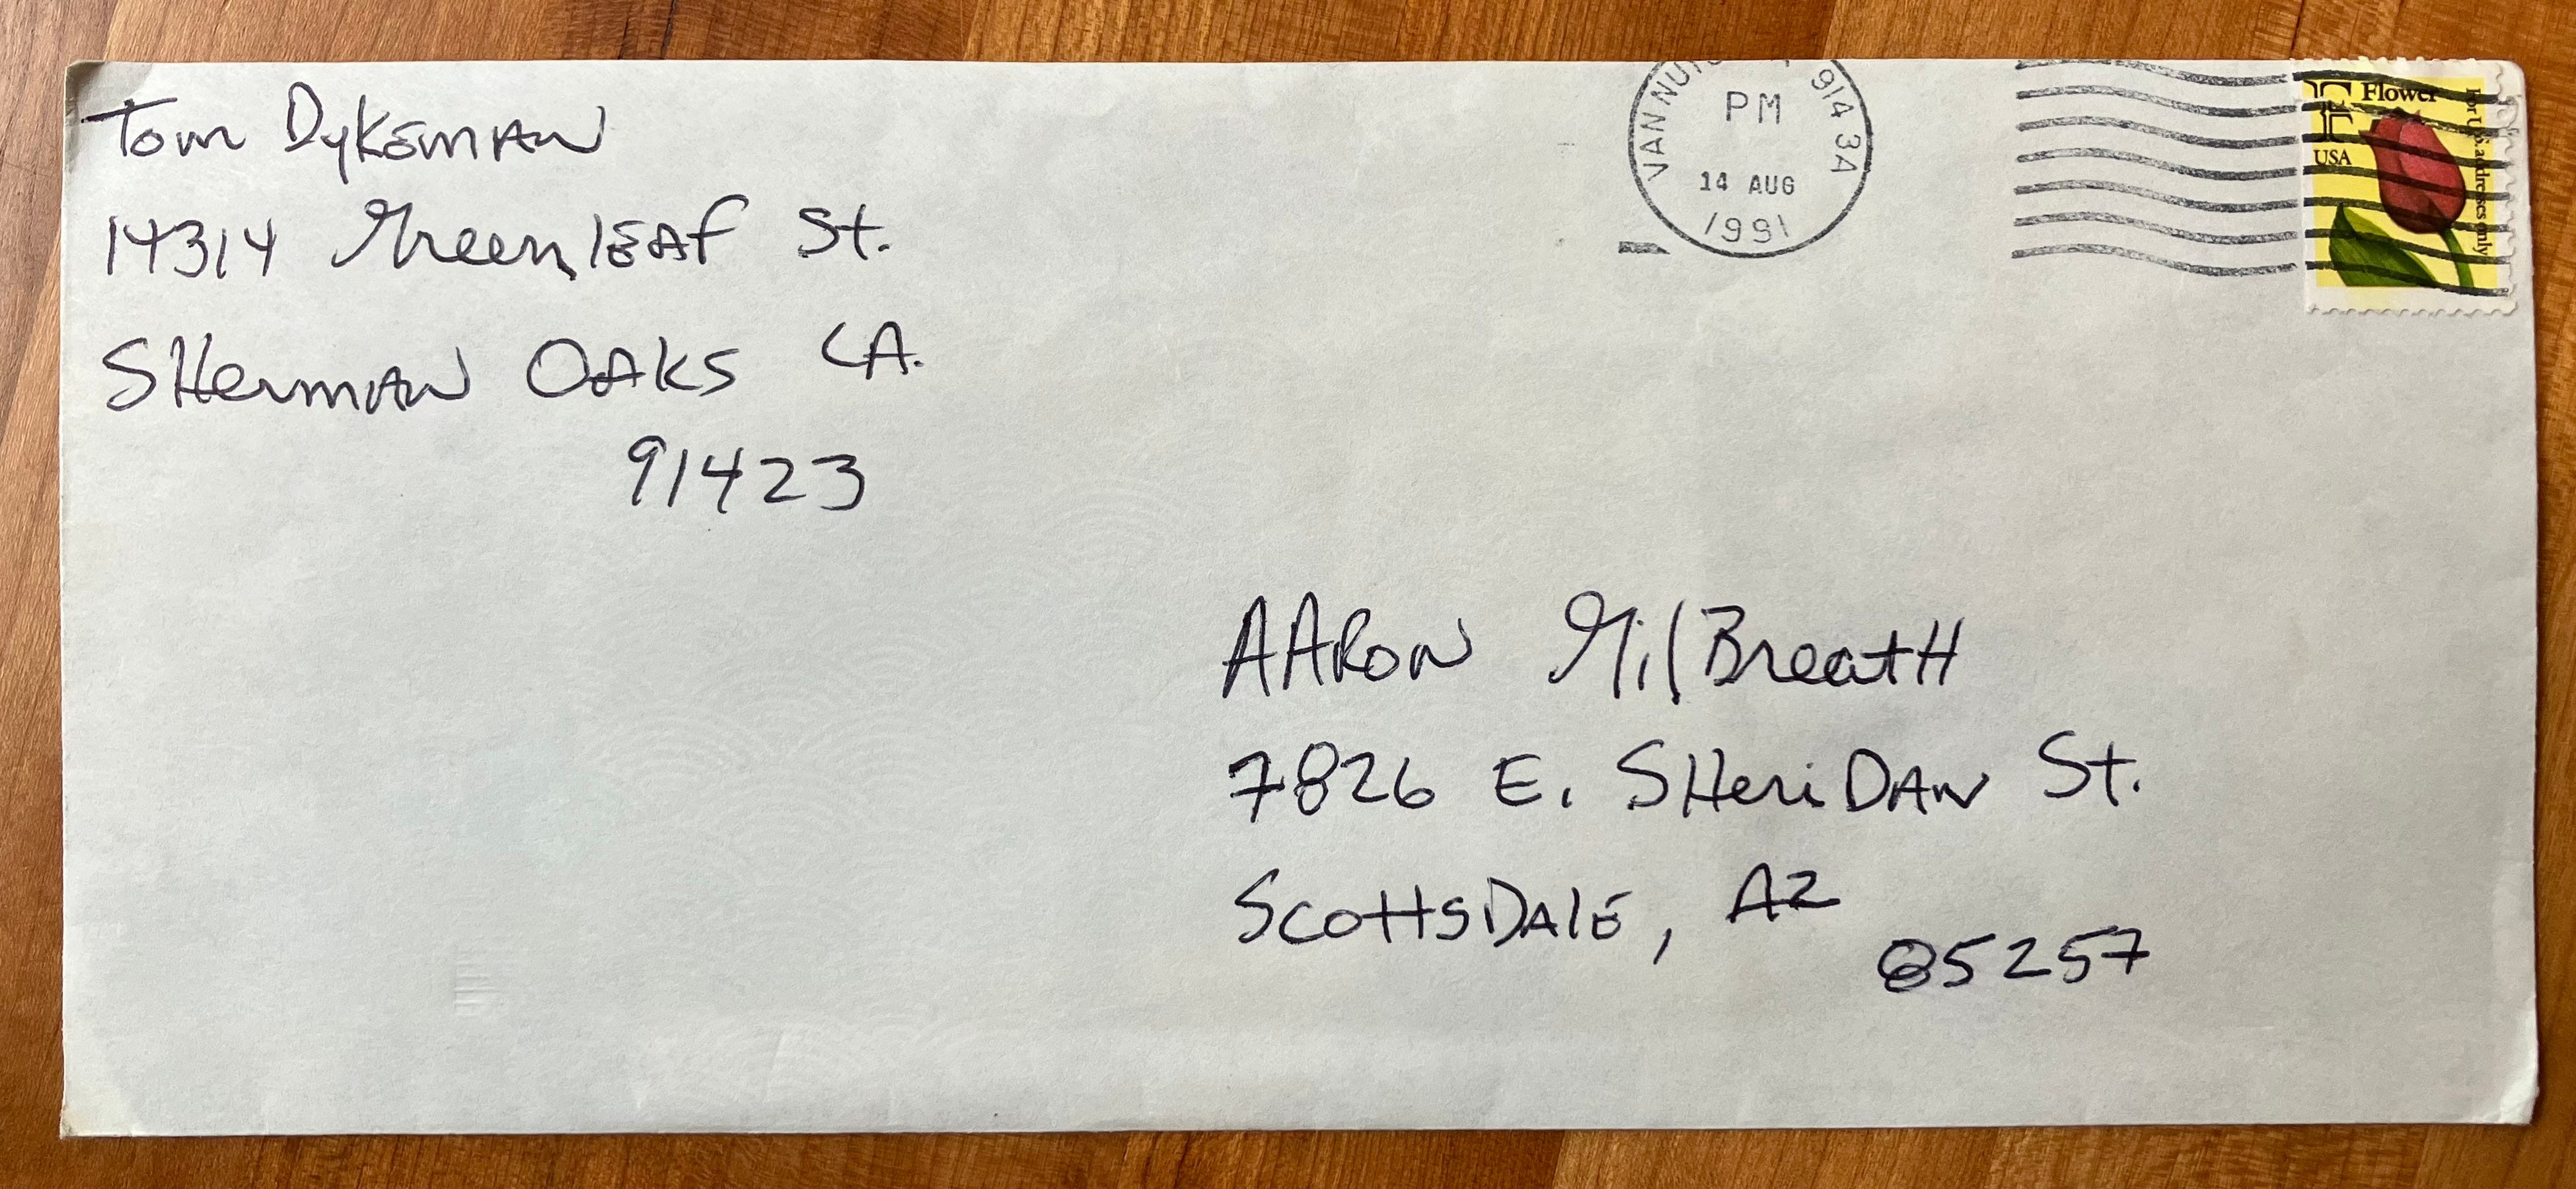 Tom Dykeman
14314 Greenleaf St.
Sherman Oaks CA.
91423
VAN NUYS 914 3A
PM
14 AUG
1991
Flower
USA
For U.S. addresses only
Aaron Gilbreath
7826 E. Sheridan St.
Scottsdale, AZ
85257